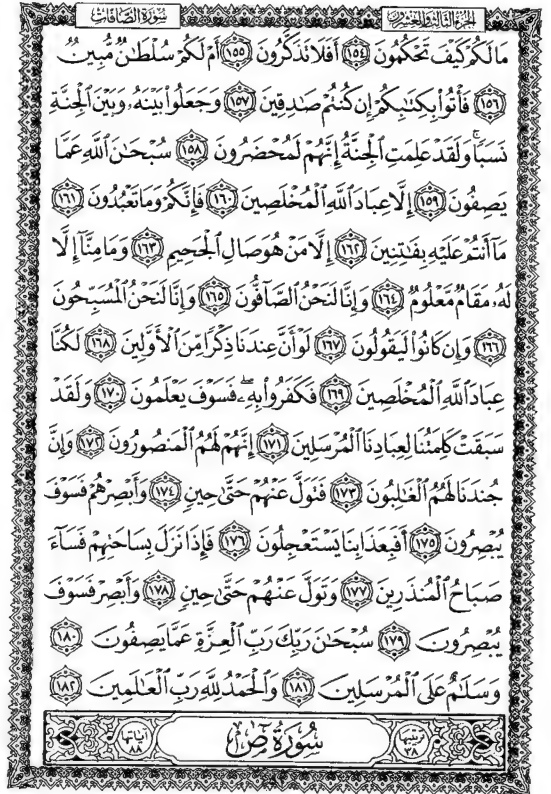 الجزء الثالث والعشرون سورة الصافات
مَا لَكُمْ كَيْفَ تَحْكُمُونَ ١٥٤ أَفَلَا تَذَكَّرُونَ ١٥٥ أَمْ لَكُمْ سُلْطَٰنٌ مُّبِينٌ
١٥٦ فَأْتُوا۟ بِكِتَٰبِكُمْ إِن كُنتُمْ صَٰدِقِينَ ١٥٧ وَجَعَلُوا۟ بَيْنَهُۥ وَبَيْنَ ٱلْجِنَّةِ
نَسَبًا ۚ وَلَقَدْ عَلِمَتِ ٱلْجِنَّةُ إِنَّهُمْ لَمُحْضَرُونَ ١٥٨ سُبْحَٰنَ ٱللَّهِ عَمَّا
يَصِفُونَ ١٥٩ إِلَّا عِبَادَ ٱللَّهِ ٱلْمُخْلَصِينَ ١٦٠ فَإِنَّكُمْ وَمَا تَعْبُدُونَ ١٦١
مَآ أَنتُمْ عَلَيْهِ بِفَٰتِنِينَ ١٦٢ إِلَّا مَنْ هُوَ صَالِ ٱلْجَحِيمِ ١٦٣ وَمَا مِنَّآ إِلَّا
لَهُۥ مَقَامٌ مَّعْلُومٌ ١٦٤ وَإِنَّا لَنَحْنُ ٱلصَّآفُّونَ ١٦٥ وَإِنَّا لَنَحْنُ ٱلْمُسَبِّحُونَ
١٦٦ وَإِن كَانُوا۟ لَيَقُولُونَ ١٦٧ لَوْ أَنَّ عِندَنَا ذِكْرًا مِّنَ ٱلْأَوَّلِينَ ١٦٨ لَكُنَّا
عِبَادَ ٱللَّهِ ٱلْمُخْلَصِينَ ١٦٩ فَكَفَرُوا۟ بِهِۦ ۖ فَسَوْفَ يَعْلَمُونَ ١٧٠ وَلَقَدْ
سَبَقَتْ كَلِمَتُنَا لِعِبَادِنَا ٱلْمُرْسَلِينَ ١٧١ إِنَّهُمْ لَهُمُ ٱلْمَنصُورُونَ ١٧٢ وَإِنَّ
جُندَنَا لَهُمُ ٱلْغَٰلِبُونَ ١٧٣ فَتَوَلَّ عَنْهُمْ حَتَّىٰ حِينٍ ١٧٤ وَأَبْصِرْهُمْ فَسَوْفَ
يُبْصِرُونَ ١٧٥ أَفَبِعَذَابِنَا يَسْتَعْجِلُونَ ١٧٦ فَإِذَا نَزَلَ بِسَاحَتِهِمْ فَسَآءَ
صَبَاحُ ٱلْمُنذَرِينَ ١٧٧ وَتَوَلَّ عَنْهُمْ حَتَّىٰ حِينٍ ١٧٨ وَأَبْصِرْ فَسَوْفَ
يُبْصِرُونَ ١٧٩ سُبْحَٰنَ رَبِّكَ رَبِّ ٱلْعِزَّةِ عَمَّا يَصِفُونَ ١٨٠
وَسَلَٰمٌ عَلَى ٱلْمُرْسَلِينَ ١٨١ وَٱلْحَمْدُ لِلَّهِ رَبِّ ٱلْعَٰلَمِينَ ١٨٢
ترتيبها سُورَةُ صٓ آياتها ٨٨